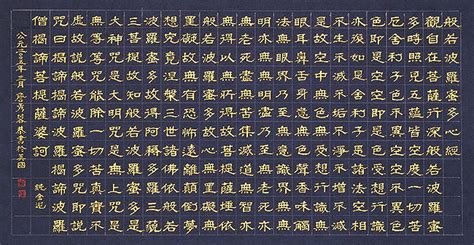 般若波羅蜜多心經
觀自在菩薩行深般若波羅蜜
多時照見五蘊皆空度一切苦
厄舍利子色不異空空不異色
色即是空空即是色受想行識
亦復如是舍利子是諸法空相
不生不滅不垢不淨不增不減
是故空中無色無受想行識無
眼耳鼻舌身意無色聲香味觸
法無眼界乃至無意識界無無
明亦無無明盡乃至無老死亦
無老死盡無苦集滅道無智亦
無得以無所得故菩提薩埵依
般若波羅蜜多故心無罣礙無
罣礙故無有恐怖遠離顛倒夢
想究竟涅槃三世諸佛依般若
波羅蜜多故得阿耨多羅三藐
三菩提故知般若波羅蜜多是
大神咒是大明咒是無上咒是
無等等咒能除一切苦真實不
虛故說般若波羅蜜多咒即說
咒曰揭諦揭諦波羅揭諦波羅
僧揭諦菩提薩婆訶
公元年三月恭書於美國
純金泥